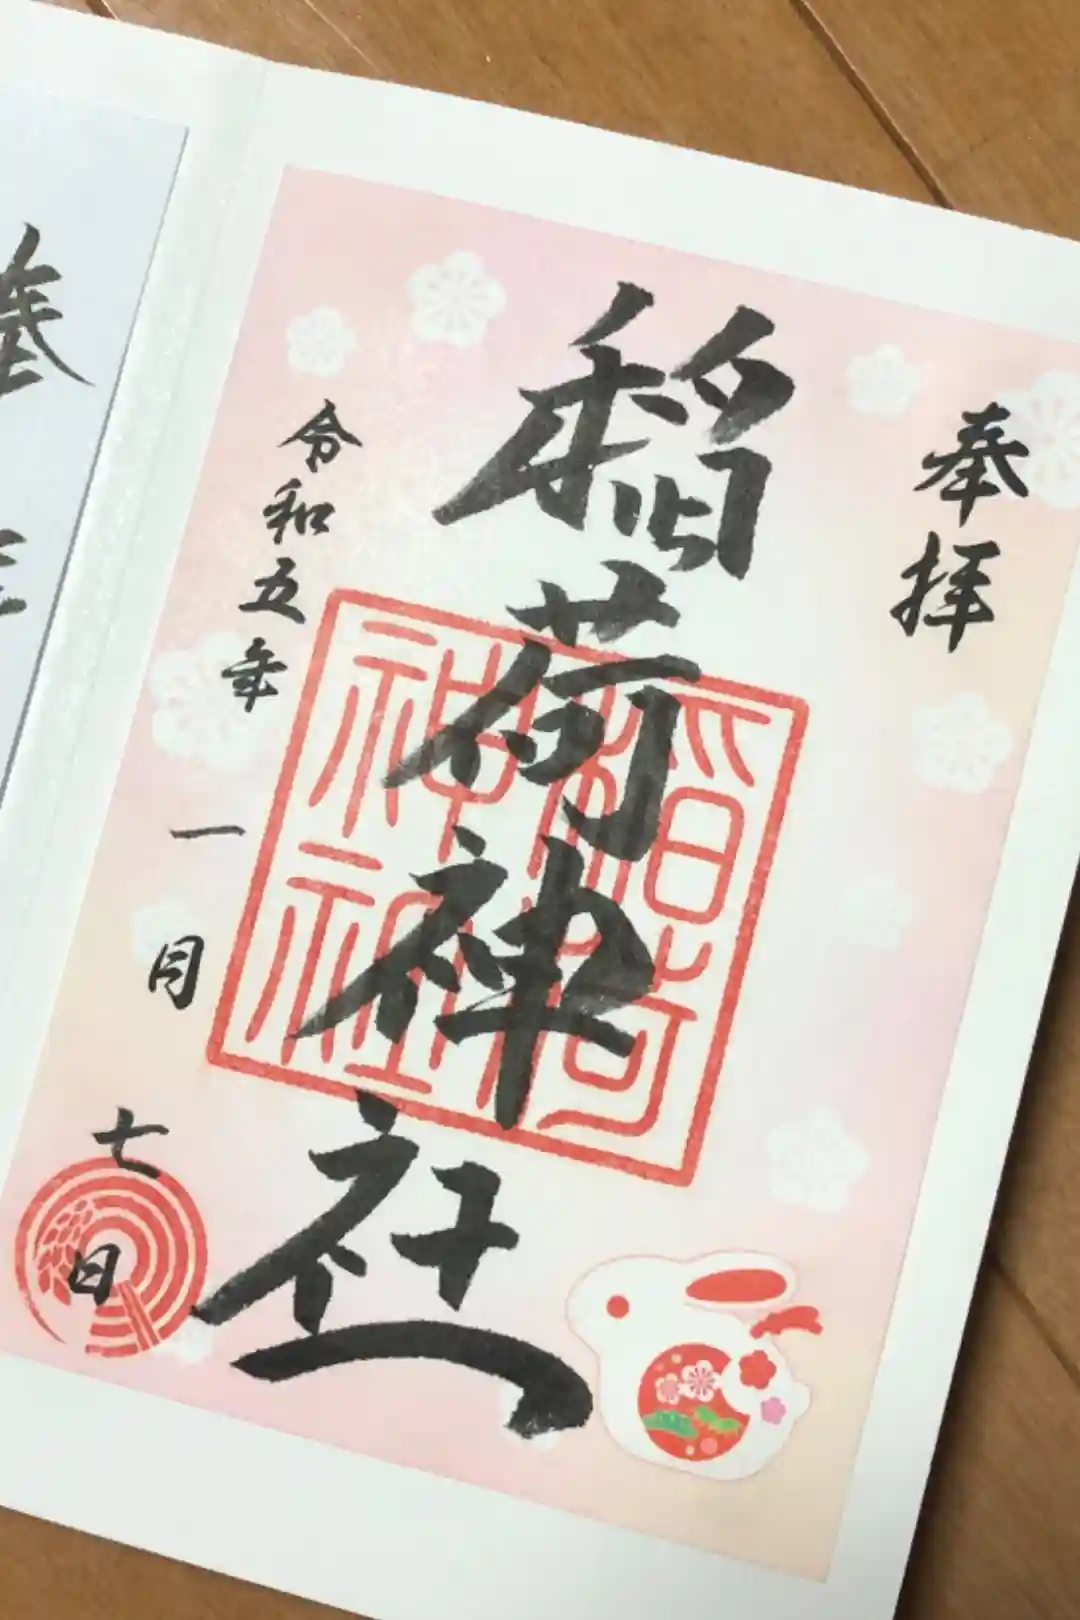 奉拝
稲荷神社
稲荷神社
令和五年一月七日
奉